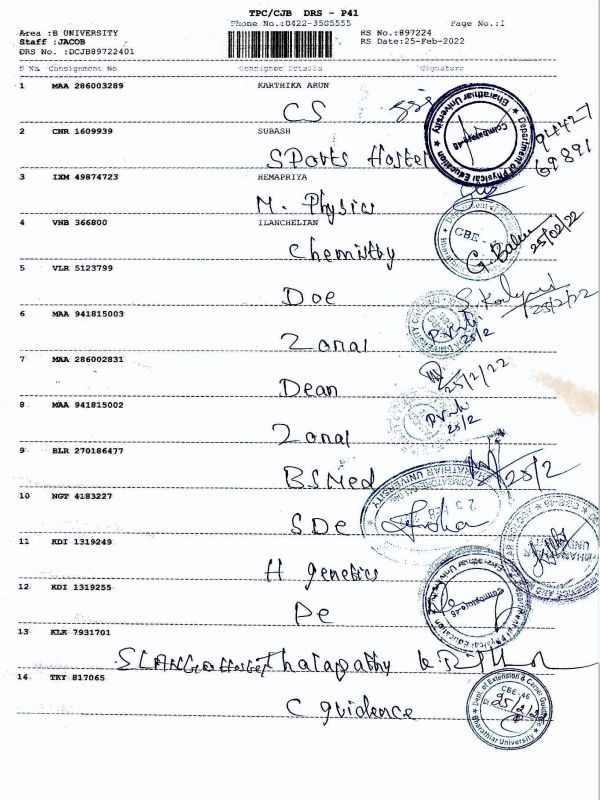 TPC/CJB DRS - P41
Phone No.:0422-3505555 Page No.:1
Area :B UNIVERSITY RS No.:897224
Staff :JACOB RS Date:25-Feb-2022
DRS No. :DCJB89722401
S No. Consignment No Consignee Details Signature
1 MAA 286003289 KARTHIKA ARUN
CS
94427
69891
2 CNR 1609939 SUBASH
Sports Hostel
3 IXM 49874723 HEMAPRIYA
M. Physics
4 VNB 366800 ILANCHELIAN
Chemistry G. Babu 25/02/22
5 VLR 5123799
Doe 25/2/22
6 MAA 941815003
Zonal 25/2
7 MAA 286002831
Dean 25/2/22
8 MAA 941815002
Zonal 25/2
9 BLR 270186477
BSMed 25/2
10 NGT 4183227
SDe
11 KDI 1319249
H genetics
12 KDI 1319255
Pe
13 KLK 7931701
Thalapathy
14 TKY 817065
C guidence
Department of Physical Education
Bharathiar University
Coimbatore-46
Dept. of Extension & Career Guidance
CBE-46
25/2/22
Bharathiar University